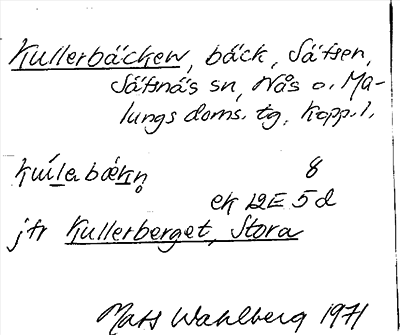 Kullerbäcken, bäck, Säfsen,
Säfsnäs sn, Nås o. Ma-
lungs doms. tg, Kopp. l.
kúlerbäkn̥ 8
ek 12E 5d
jfr Kullerberget, Stora
Mats Wahlberg 1971